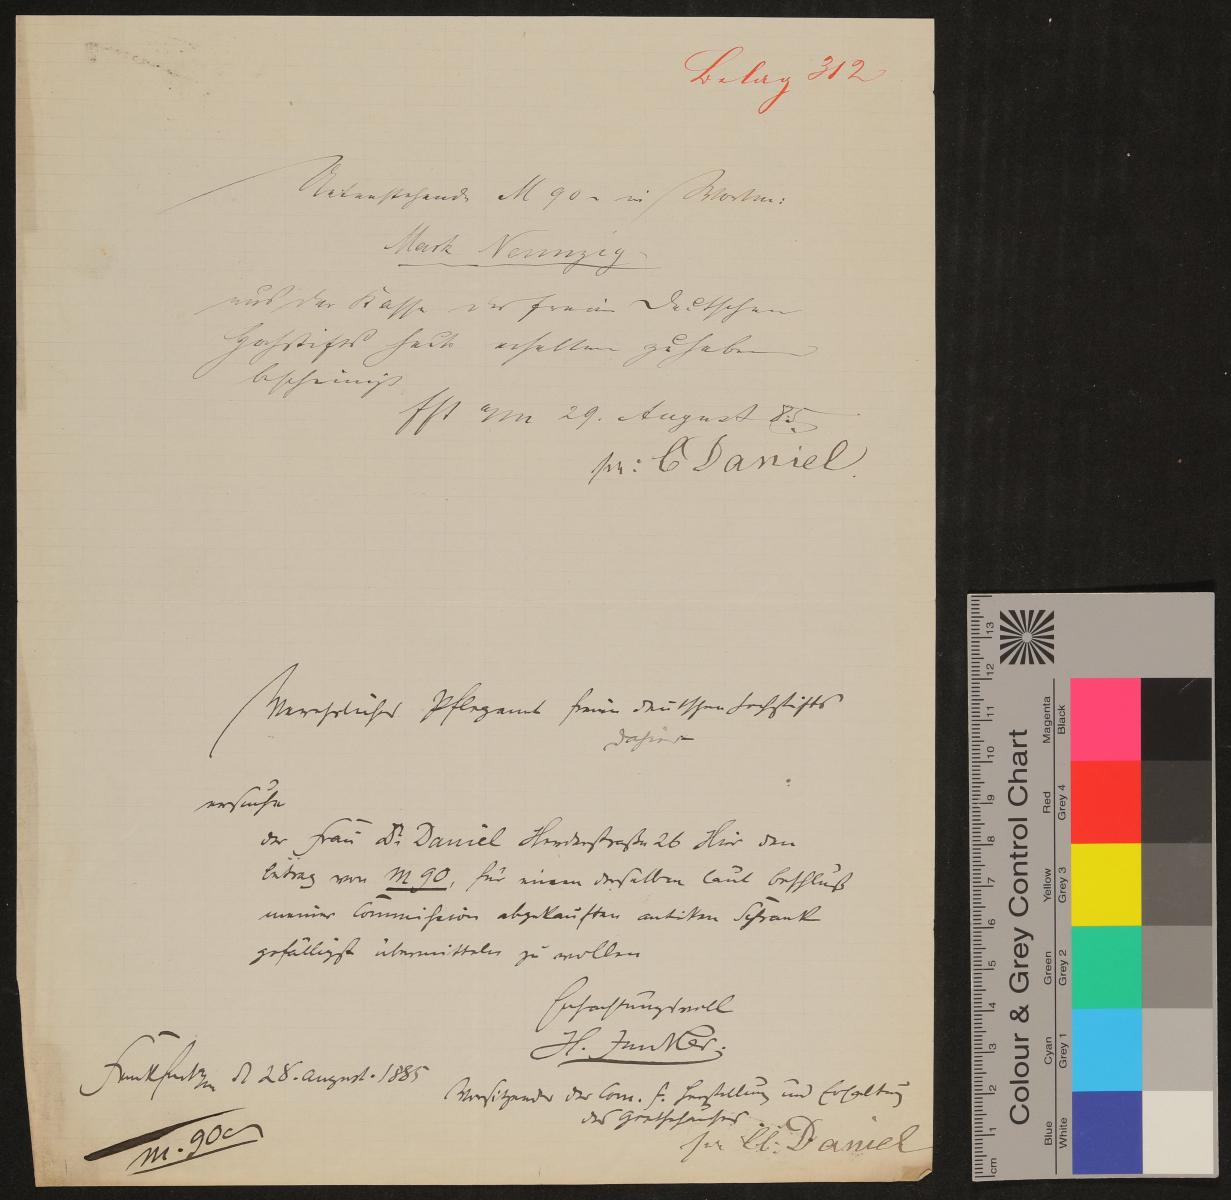 Belag 312
Untenstehende M 90 – in Worten:
Mark Neunzig
aus der Kasse des freien Deutschen
Hochstifts heute erhalten zu haben
bescheinigt
Ffst a/m 29. August 85
pr: C Daniel.
Verehrliches Pflegamt freien deutschen Hochstifts
dahier
ersuche
der Frau Dr. Daniel Herderstraße 26 Hier den
Betrag von M 90, für einen derselben laut Beschluß
meiner Commission abgekauften antiken Schrank
gefälligst übermitteln zu wollen
Hochachtungsvoll
H. Junker.
Frankfurt a/m d 28. August. 1885
Vorsitzender der Com. f. Herstellung und Erhaltung
des Goethehauses
M. 90
pr Cl. Daniel
13
12
11
10
9
8
7
6
5
4
3
2
1
cm
Colour & Grey Control Chart
Magenta
Black
Red
Grey 4
Yellow
Grey 3
Green
Grey 2
Cyan
Grey 1
Blue
White